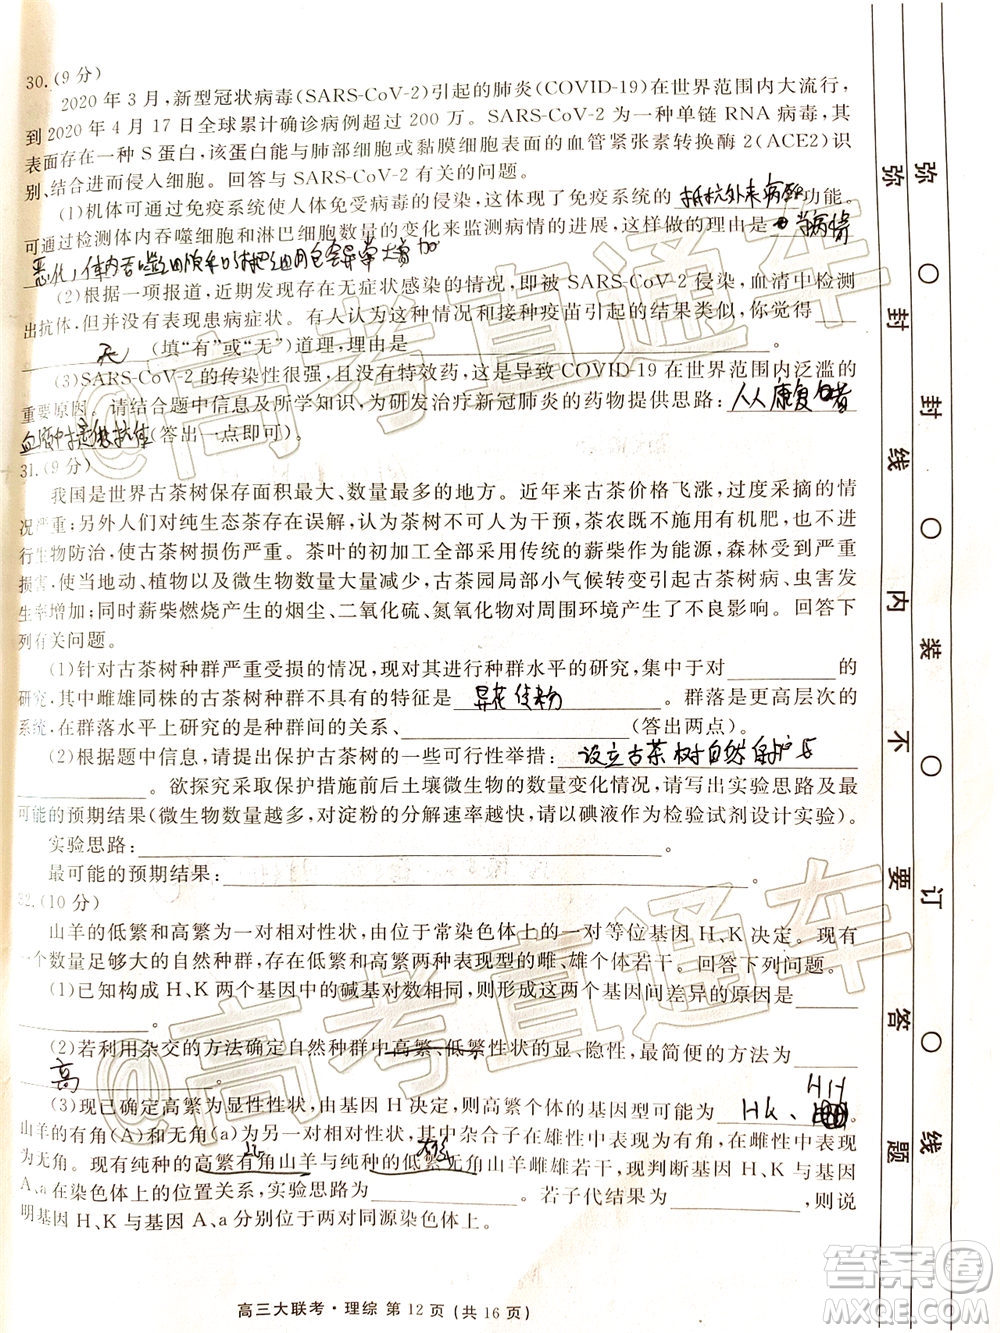 30.(9 分)
2020 年 3 月,新型冠状病毒(SARS-CoV-2)引起的肺炎(COVID-19)在世界范围内大流行,
到 2020 年 4 月 17 日全球累计确诊病例超过 200 万。SARS-CoV-2 为一种单链 RNA 病毒,其
表面存在一种 S 蛋白,该蛋白能与肺部细胞或黏膜细胞表面的血管紧张素转换酶 2(ACE2)识
别、结合进而侵入细胞。回答与 SARS-CoV-2 有关的问题。
(1)机体可通过免疫系统使人体免受病毒的侵染,这体现了免疫系统的 抵抗外来病原 功能。
可通过检测体内吞噬细胞和淋巴细胞数量的变化来监测病情的进展,这样做的理由是 当病情
恶化,体内吞噬细胞和淋巴细胞会异常增加
(2)根据一项报道,近期发现存在无症状感染的情况,即被 SARS-CoV-2 侵染,血清中检测
出抗体,但并没有表现患病症状。有人认为这种情况和接种疫苗引起的结果类似,你觉得
无 (填“有”或“无”)道理,理由是 。
(3)SARS-CoV-2 的传染性很强,且没有特效药,这是导致 COVID-19 在世界范围内泛滥的
重要原因。请结合题中信息及所学知识,为研发治疗新冠肺炎的药物提供思路: 从康复患者
血液中提取抗体 (答出一点即可)。
31.(9 分)
我国是世界古茶树保存面积最大、数量最多的地方。近年来古茶价格飞涨,过度采摘的情
况严重;另外人们对纯生态茶存在误解,认为茶树不能用农药、化肥,茶农既不施用有机肥,也不进
行生物防治,使古茶树损伤严重。茶叶的初加工全部采用传统的薪柴作为能源,森林受到严重
损害,使当地动、植物以及微生物数量大量减少,古茶园局部小气候转变引起古茶树病、虫害发
生率增加;同时薪柴燃烧产生的烟尘、二氧化硫、氮氧化物对周围环境产生了不良影响。回答下
列有关问题。
(1)针对古茶树种群严重受损的情况,现对其进行种群水平的研究,集中于对 的
研究,其中雌雄同株的古茶树种群不具有的特征是 异花传粉 。群落是更高层次的
系统,在群落水平上研究的是种群间的关系、 (答出两点)。
(2)根据题中信息,请提出保护古茶树的一些可行性举措: 设立古茶树自然保护区
。欲探究采取保护措施前后土壤微生物的数量变化情况,请写出实验思路及最
可能的预期结果(微生物数量越多,对淀粉的分解速率越快,请以碘液作为检验试剂设计实验)。
实验思路: 。
最可能的预期结果: 。
32.(10 分)
山羊的低繁和高繁为一对相对性状,由位于常染色体上的一对等位基因 H、K 决定。现有
一个数量足够大的自然种群,存在低繁和高繁两种表现型的雌、雄个体若干。回答下列问题。
(1)已知构成 H、K 两个基因中的碱基对数相同,则这两个基因间差异的原因是
。
(2)若利用杂交的方法确定自然种群中高繁、低繁性状的显、隐性,最简便的方法为
高 。
(3)现已确定高繁为显性性状,由基因 H 决定,则高繁个体的基因型可能为 HK、HH 。
山羊的有角(A)和无角(a)为另一对相对性状,其中杂合子在雄性中表现为有角,在雌性中表现
为无角。现有纯种的高繁有角山羊与纯种的低繁无角山羊雌雄若干,现判断基因 H、K 与基因
A、a 在染色体上的位置关系,实验思路为 。若子代结果为 ,则说
明基因 H、K 与基因 A、a 分别位于两对同源染色体上。
高三大联考·理综 第 12 页(共 16 页)
弥 封 线 内 不 要 答 题
弥 〇 封 〇 装 〇 订 〇 线
@高考直通车
@高考直通车
答案圈
MXQE.COM